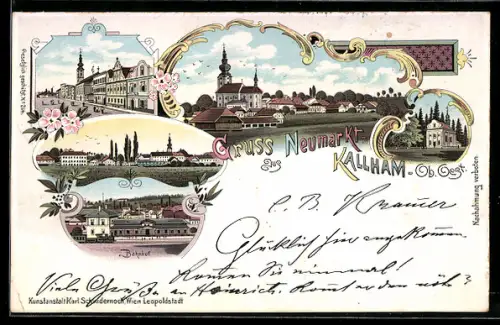 Gruss
aus
Neumarkt-
KALLHAM - Ob. Oest.
Nachahmung verboten.
Gesetzlich geschützt
Bahnhof
C. B. Kramer
Glücklich hier angekommen.
Kommen Sie einmal!
Viele Grüße an Heinrich. Kommt er den
Kunstanstalt Karl Schwidernoch, Wien Leopoldstadt